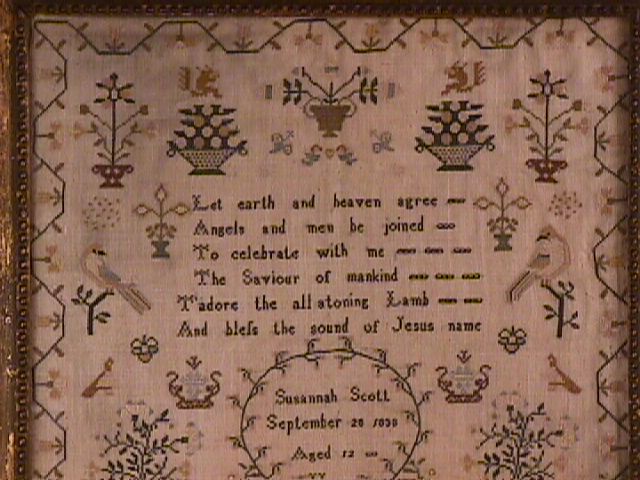 Let earth and heaven agree
Angels and men be joined
To celebrate with me
The Saviour of mankind
T'adore the all atoning Lamb
And bleſs the sound of Jesus name
Susannah Scott
September 28 1838
Aged 12